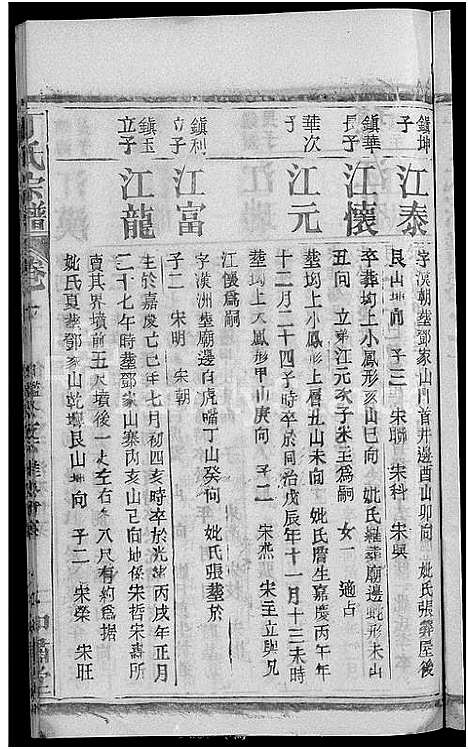 鎮坤
子
江泰
字漢朝塟鄧家山門首井邊酉山卯向 妣氏張葬屋後
艮山坤向 子三 宋聯 宋科 宋與
鎮華
長子
江懷
卒葬均上小鳳形亥山巳向 妣氏羅葬廟邊蛇形未山
丑向 立弟江元次子宋主為嗣 女一 適占
華次
子
江元
塟均上小鳳形上層丑山未向 妣氏
生嘉慶丙午年
十二月二十四子時卒於同治戊辰年十一月十三未時
塟均上大鳳形甲山庚向 子二 宋燕 宋主立與兄
江懷爲嗣
鎮利
立子
江富
字漢洲塟廟邊白虎嘴丁山癸向 妣氏張塟於
子二 宋明 宋朝
鎮玉
立子
江龍
生於嘉慶己巳年七月初四亥時卒於光緒丙戌年正月
二十七午時塟鄧家山寨丙亥山己向地係宋哲宋壽所
賣其界墳前五尺墳後一丈左右各八尺有約爲據
妣氏夏塟鄧家山乾塅艮山坤向 子二 宋榮 宋旺
丁氏宗譜
卷七